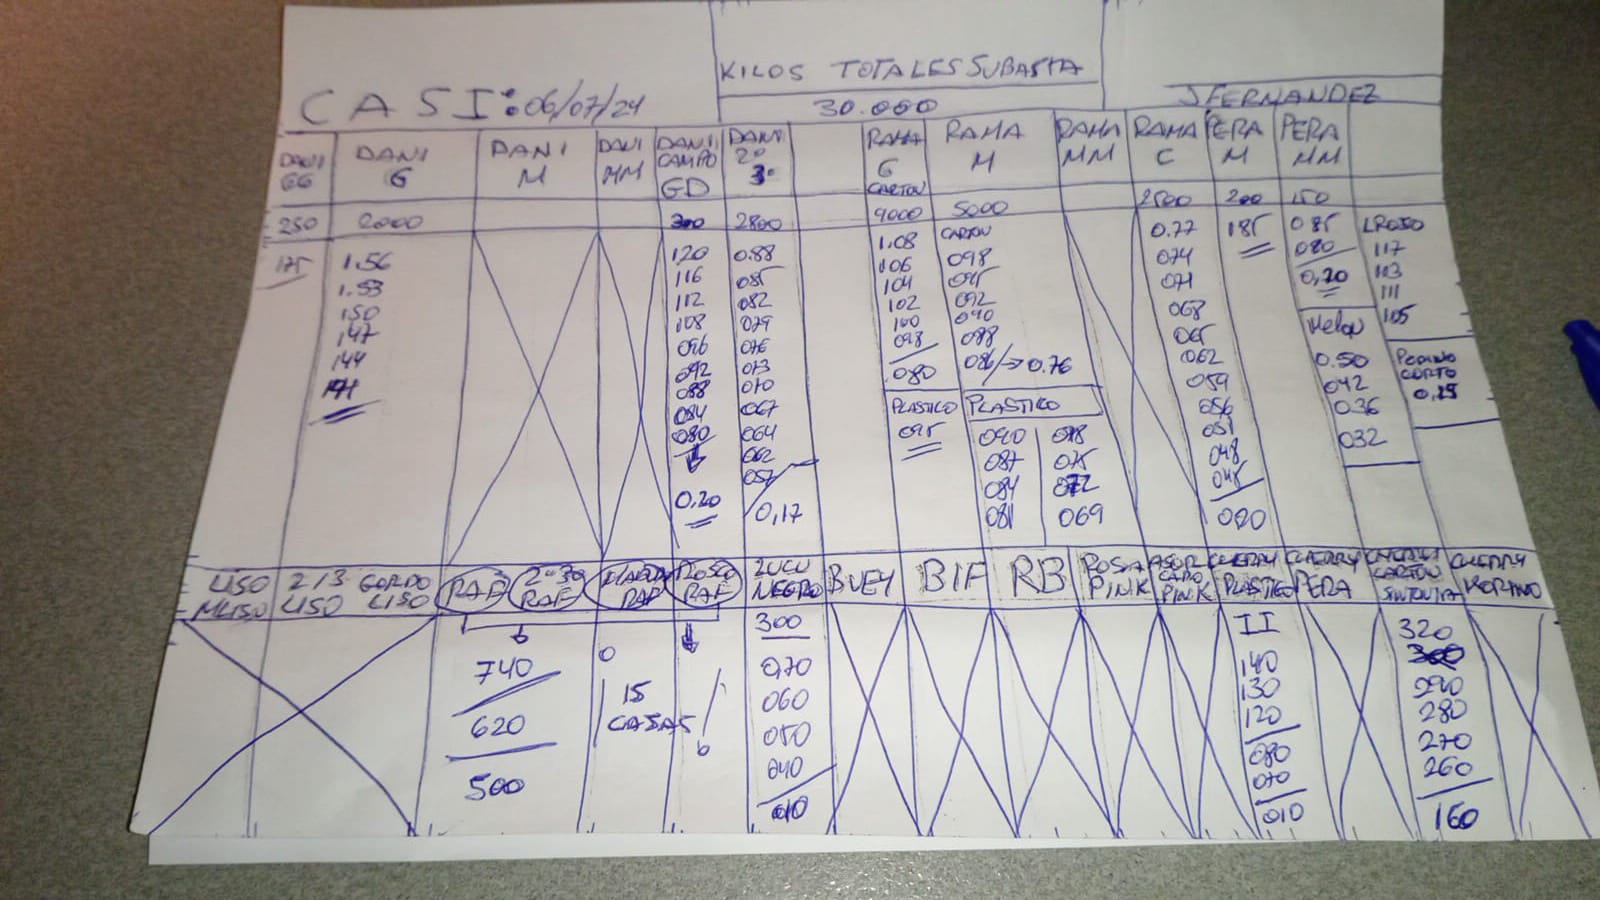 KILOS TOTALES SUBASTA
CASI: 06/07/24
30.000
J FERNANDEZ
DANI GG
250
175
DANI G
2000
1.56
1.53
150
147
144
141
DANI M
DANI MM
DANI CAMPO GD
300
120
116
112
108
096
092
088
084
080
0,20
DANI 2º 3º
2800
0.88
085
082
079
076
073
070
067
064
062
057
0,17
RAMA G CARTON
9000
1.08
106
104
102
100
098
080
PLASTICO
095
RAMA M
5000
CARTON
098
095
092
090
088
086/→0.76
PLASTICO
090 078
087 075
084 072
081 069
RAMA MM
RAMA C
2500
0.77
074
071
068
065
062
059
056
051
048
045
020
PERA M
200
185
PERA MM
150
085
080
0,20
Melon
0.50
042
0.36
032
LROJO
117
113
111
105
PEPINO CORTO
0,25
LISO MLISO
2/3 LISO
GORDO LISO
RAF
2º 3º RAF
RAF
ROSO RAF
740
620
500
15 CAJAS
ZUCU NEGRO
300
070
060
050
040
010
BUEY
BIF
RB
ROSA PINK
ASUR CAPO PINK
CHERRY PLASTICO
II
140
130
120
080
070
010
CHERRY PERA
CHERRY CARTON SINTONIA
320
300
290
280
270
260
160
CHERRY MORADO